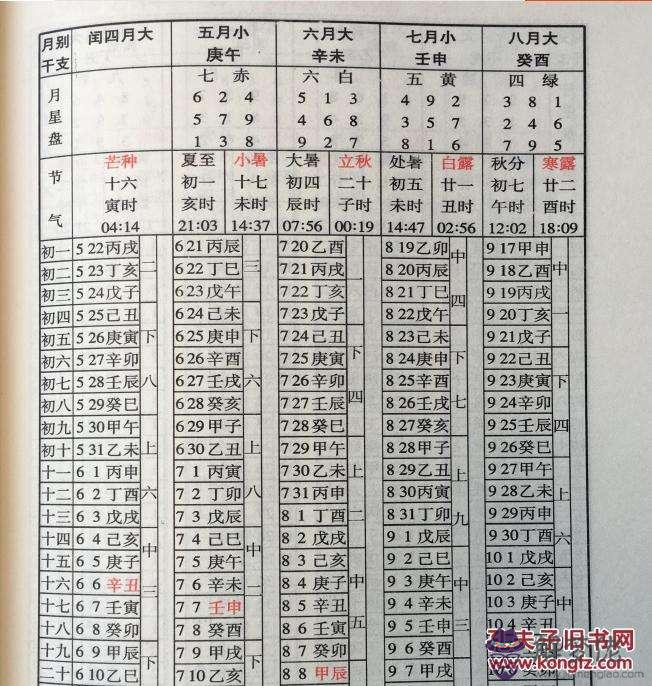 月别 闰四月大 五月小 六月大 七月小 八月大
干支 庚午 辛未 壬申 癸酉
月星盘 七 赤 六 白 五 黄 四 绿
6 2 4 5 1 3 4 9 2 3 8 1
5 7 9 4 6 8 3 5 7 2 4 6
1 3 8 9 2 7 8 1 6 7 9 5
节气 芒种 夏至 小暑 大暑 立秋 处暑 白露 秋分 寒露
十六 初一 十七 初四 二十 初五 廿一 初七 廿二
寅时 亥时 未时 辰时 子时 未时 丑时 午时 酉时
04:14 21:03 14:37 07:56 00:19 14:47 02:56 12:02 18:09
初一 5 22 丙戌 6 21 丙辰 7 20 乙酉 8 19 乙卯 中 9 17 甲申
初二 5 23 丁亥 二 6 22 丁巳 三 7 21 丙戌 8 20 丙辰 9 18 乙酉 中
初三 5 24 戊子 6 23 戊午 7 22 丁亥 一 8 21 丁巳 四 9 19 丙戌
初四 5 25 己丑 6 24 己未 7 23 戊子 8 22 戊午 9 20 丁亥 一
初五 5 26 庚寅 下 6 25 庚申 下 7 24 己丑 下 8 23 己未 9 21 戊子
初六 5 27 辛卯 6 26 辛酉 7 25 庚寅 8 24 庚申 下 9 22 己丑
初七 5 28 壬辰 八 6 27 壬戌 六 7 26 辛卯 四 8 25 辛酉 9 23 庚寅 下
初八 5 29 癸巳 6 28 癸亥 7 27 壬辰 8 26 壬戌 七 9 24 辛卯
初九 5 30 甲午 6 29 甲子 7 28 癸巳 8 27 癸亥 9 25 壬辰 四
初十 5 31 乙未 上 6 30 乙丑 上 7 29 甲午 8 28 甲子 9 26 癸巳
十一 6 1 丙申 7 1 丙寅 7 30 乙未 上 8 29 乙丑 上 9 27 甲午
十二 6 2 丁酉 六 7 2 丁卯 八 7 31 丙申 8 30 丙寅 9 28 乙未 上
十三 6 3 戊戌 7 3 戊辰 8 1 丁酉 二 8 31 丁卯 九 9 29 丙申
十四 6 4 己亥 中 7 4 己巳 中 8 2 戊戌 9 1 戊辰 9 30 丁酉 六
十五 6 5 庚子 7 5 庚午 8 3 己亥 9 2 己巳 10 1 戊戌
十六 6 6 辛丑 三 7 6 辛未 二 8 4 庚子 中 9 3 庚午 中 10 2 己亥
十七 6 7 壬寅 7 7 壬申 8 5 辛丑 9 4 辛未 10 3 庚子 中
十八 6 8 癸卯 7 8 癸酉 8 6 壬寅 五 9 5 壬申 三 10 4 辛丑
十九 6 9 甲辰 下 7 9 甲戌 下 8 7 癸卯 9 6 癸酉
二十 6 10 乙巳 7 10 乙亥 8 8 甲辰 9 7 甲戌
孔夫子旧书网
www.kongfz.com